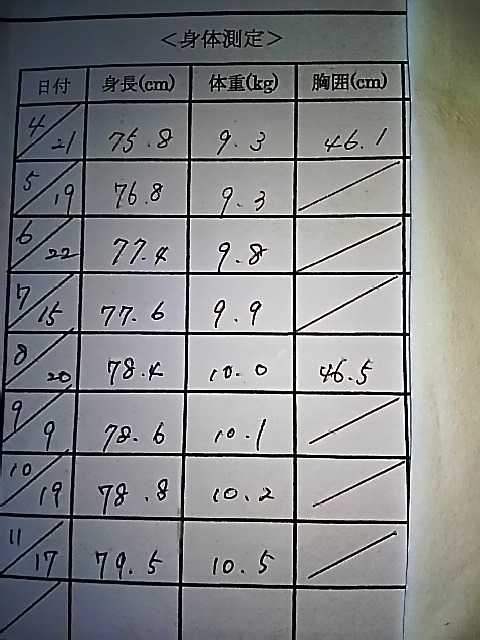 ＜身体測定＞
日付 身長(cm) 体重(kg) 胸囲(cm)
4/21 75.8 9.3 46.1
5/19 76.8 9.3
6/22 77.4 9.8
7/15 77.6 9.9
8/20 78.4 10.0 46.5
9/9 78.6 10.1
10/19 78.8 10.2
11/17 79.5 10.5